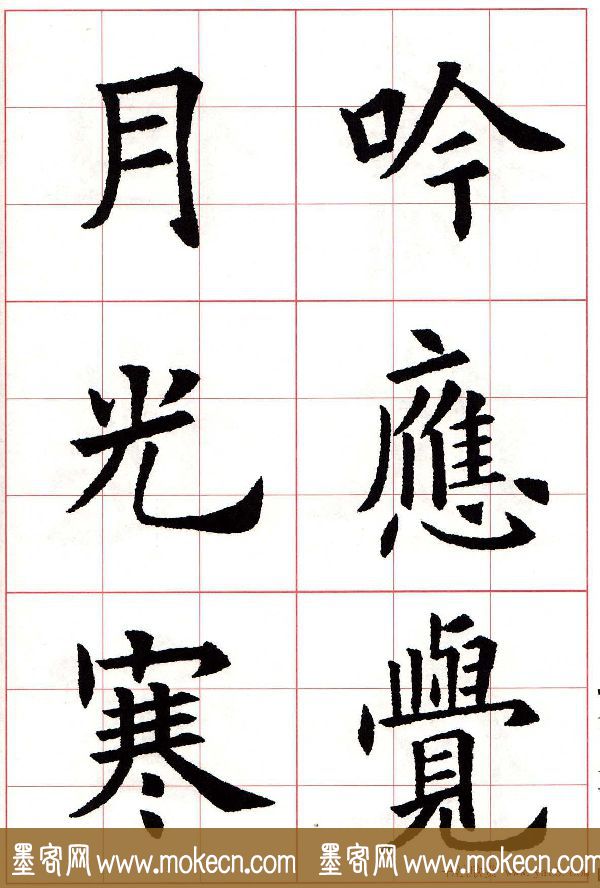 吟應覺
月光寒
墨客网 www.mokecn.com 墨客网 www.mokecn.com